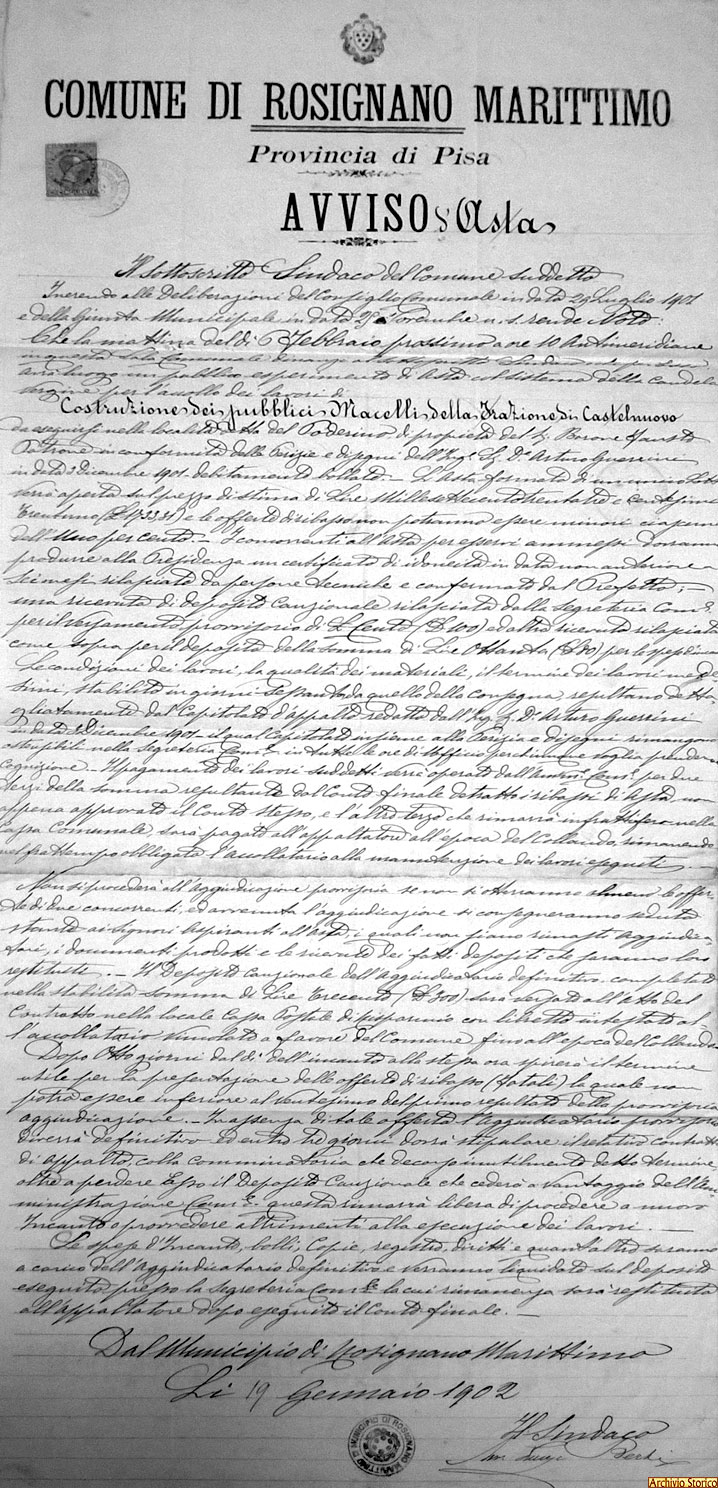 COMUNE DI ROSIGNANO MARITTIMO
Provincia di Pisa
AVVISO d'Asta
Il sottoscritto Sindaco del Comune suddetto
Inerendo alle Deliberazioni del Consiglio Comunale in data 29 Luglio 1901
e della Giunta Municipale in data Novembre u. s. rende Noto:
Che la mattina del dì 6 Febbraio prossimo a ore 10 Antimeridiane
in questa Sala Comunale
avrà luogo un pubblico esperimento di Asta col sistema della candela
vergine per l'accollo dei lavori di
Costruzione dei pubblici Macelli della Frazione di Castelnuovo
da eseguirsi nella località detta del Poderino di proprietà del Barone Fausto
Patrone in conformità della Perizia e disegni dell'Ing. Arturo Guerrini
in data 3 Dicembre 1901 debitamente bollato. - L'Asta formata di un unico
verrà aperta sul prezzo di stima di Lire Millesettecentotrentatre e centesimi
trentuno e le offerte di ribasso non potranno essere minori ciascuna
dell'Uno per cento. - I concorrenti all'Asta per esservi ammessi dovranno
produrre alla Presidenza un certificato di idoneità in data non anteriore a
sei mesi rilasciato da persone tecniche e confermato dal Prefetto; -
una ricevuta di deposito cauzionale rilasciata dalla Segreteria Com.e
per il versamento provvisorio di L. Cento (L. 100) ed altra ricevuta rilasciata
come sopra per il deposito della somma di Lire Ottanta (L. 80) per le spese
Le condizioni dei lavori, la qualità dei materiali, il termine dei lavori mede-
simi, stabilito in giorni Sessanta da quello della consegna, resultano detta-
gliatamente dal Capitolato d'appalto redatto dall'Ing. Arturo Guerrini
in data 3 Dicembre 1901 - il qual Capitolato insieme alla Perizia e disegni rimangono
ostensibili nella Segreteria Com.e in tutte le ore di Ufficio per chiunque voglia prenderne
cognizione. - Il pagamento dei lavori suddetti verrà operato dall'Amm.e Com.e per due
terzi della somma resultante dal Conto finale detratti i ribassi di Asta, non
appena approvato il Conto stesso, e l'altro terzo che rimarrà infruttifero nella
Cassa Comunale, sarà pagato all'appaltatore all'epoca del Collaudo, rimanendo
nel frattempo obbligato l'accollatario alla manutenzione dei lavori eseguiti. -
Non si procederà all'aggiudicazione provvisoria se non si otterranno almeno le offer-
te di due concorrenti, ed avvenuta l'aggiudicazione si consegneranno seduta
stante ai signori aspiranti all'Asta, i quali non siano rimasti aggiudica-
tari, i documenti prodotti e le ricevute dei fatti depositi che saranno loro
restituite. - Il Deposito cauzionale dell'Aggiudicatario definitivo completato
nella stabilita somma di Lire Trecento (L. 300) sarà versato all'Atto del
Contratto nella locale Cassa Postale di risparmio con libretto intestato al-
l'accollatario vincolato a favore del Comune fino all'epoca del Collaudo
Dopo Otto giorni dal dì dell'incanto alla stessa ora spirerà il termine
utile per la presentazione delle offerte di ribasso (fatali) la quale non
potrà essere inferiore al ventesimo del primo resultato della provvisoria
aggiudicazione. - In assenza di tale offerta l'Aggiudicatario provvisorio
diverrà definitivo ed entro tre giorni dovrà stipulare il relativo contratto
di appalto, colla comminatoria che decorso inutilmente detto termine,
oltre a perdere esso il Deposito Cauzionale che cederà a vantaggio dell'Am-
ministrazione Com.e questa rimarrà libera di procedere a nuovo
Incanto o provvedere altrimenti alla esecuzione dei lavori. -
Le spese d'Incanto, bolli, Copie, registro, diritti e quant'altro saranno
a carico dell'Aggiudicatario definitivo e verranno liquidate sul deposito
eseguito presso la Segreteria Com.le la cui rimanenza sarà restituita
all'Appaltatore dopo eseguito il Conto finale. -
Dal Municipio di Rosignano Marittimo
Li 19 Gennaio 1902
Il Sindaco
Luigi Berti
MUNICIPIO DI ROSIGNANO MARITTIMO
Archivio Storico